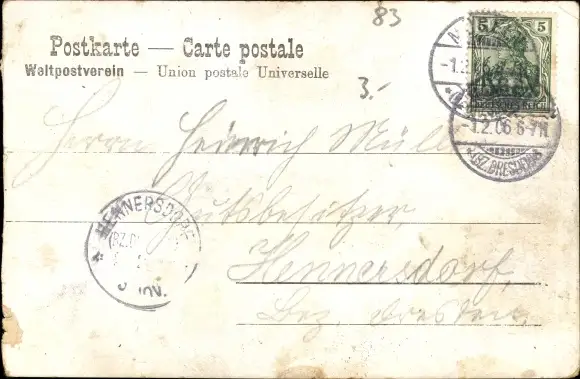 83
Postkarte — Carte postale
Weltpostverein — Union postale Universelle
3.-
5 5
-1.2.06 6-7N.
(BZ. DRESDEN)
Herrn Heinrich Müller
Gutsbesitzer
Hennersdorf,
Bez. Dresden
HENNERSDORF
(BZ.